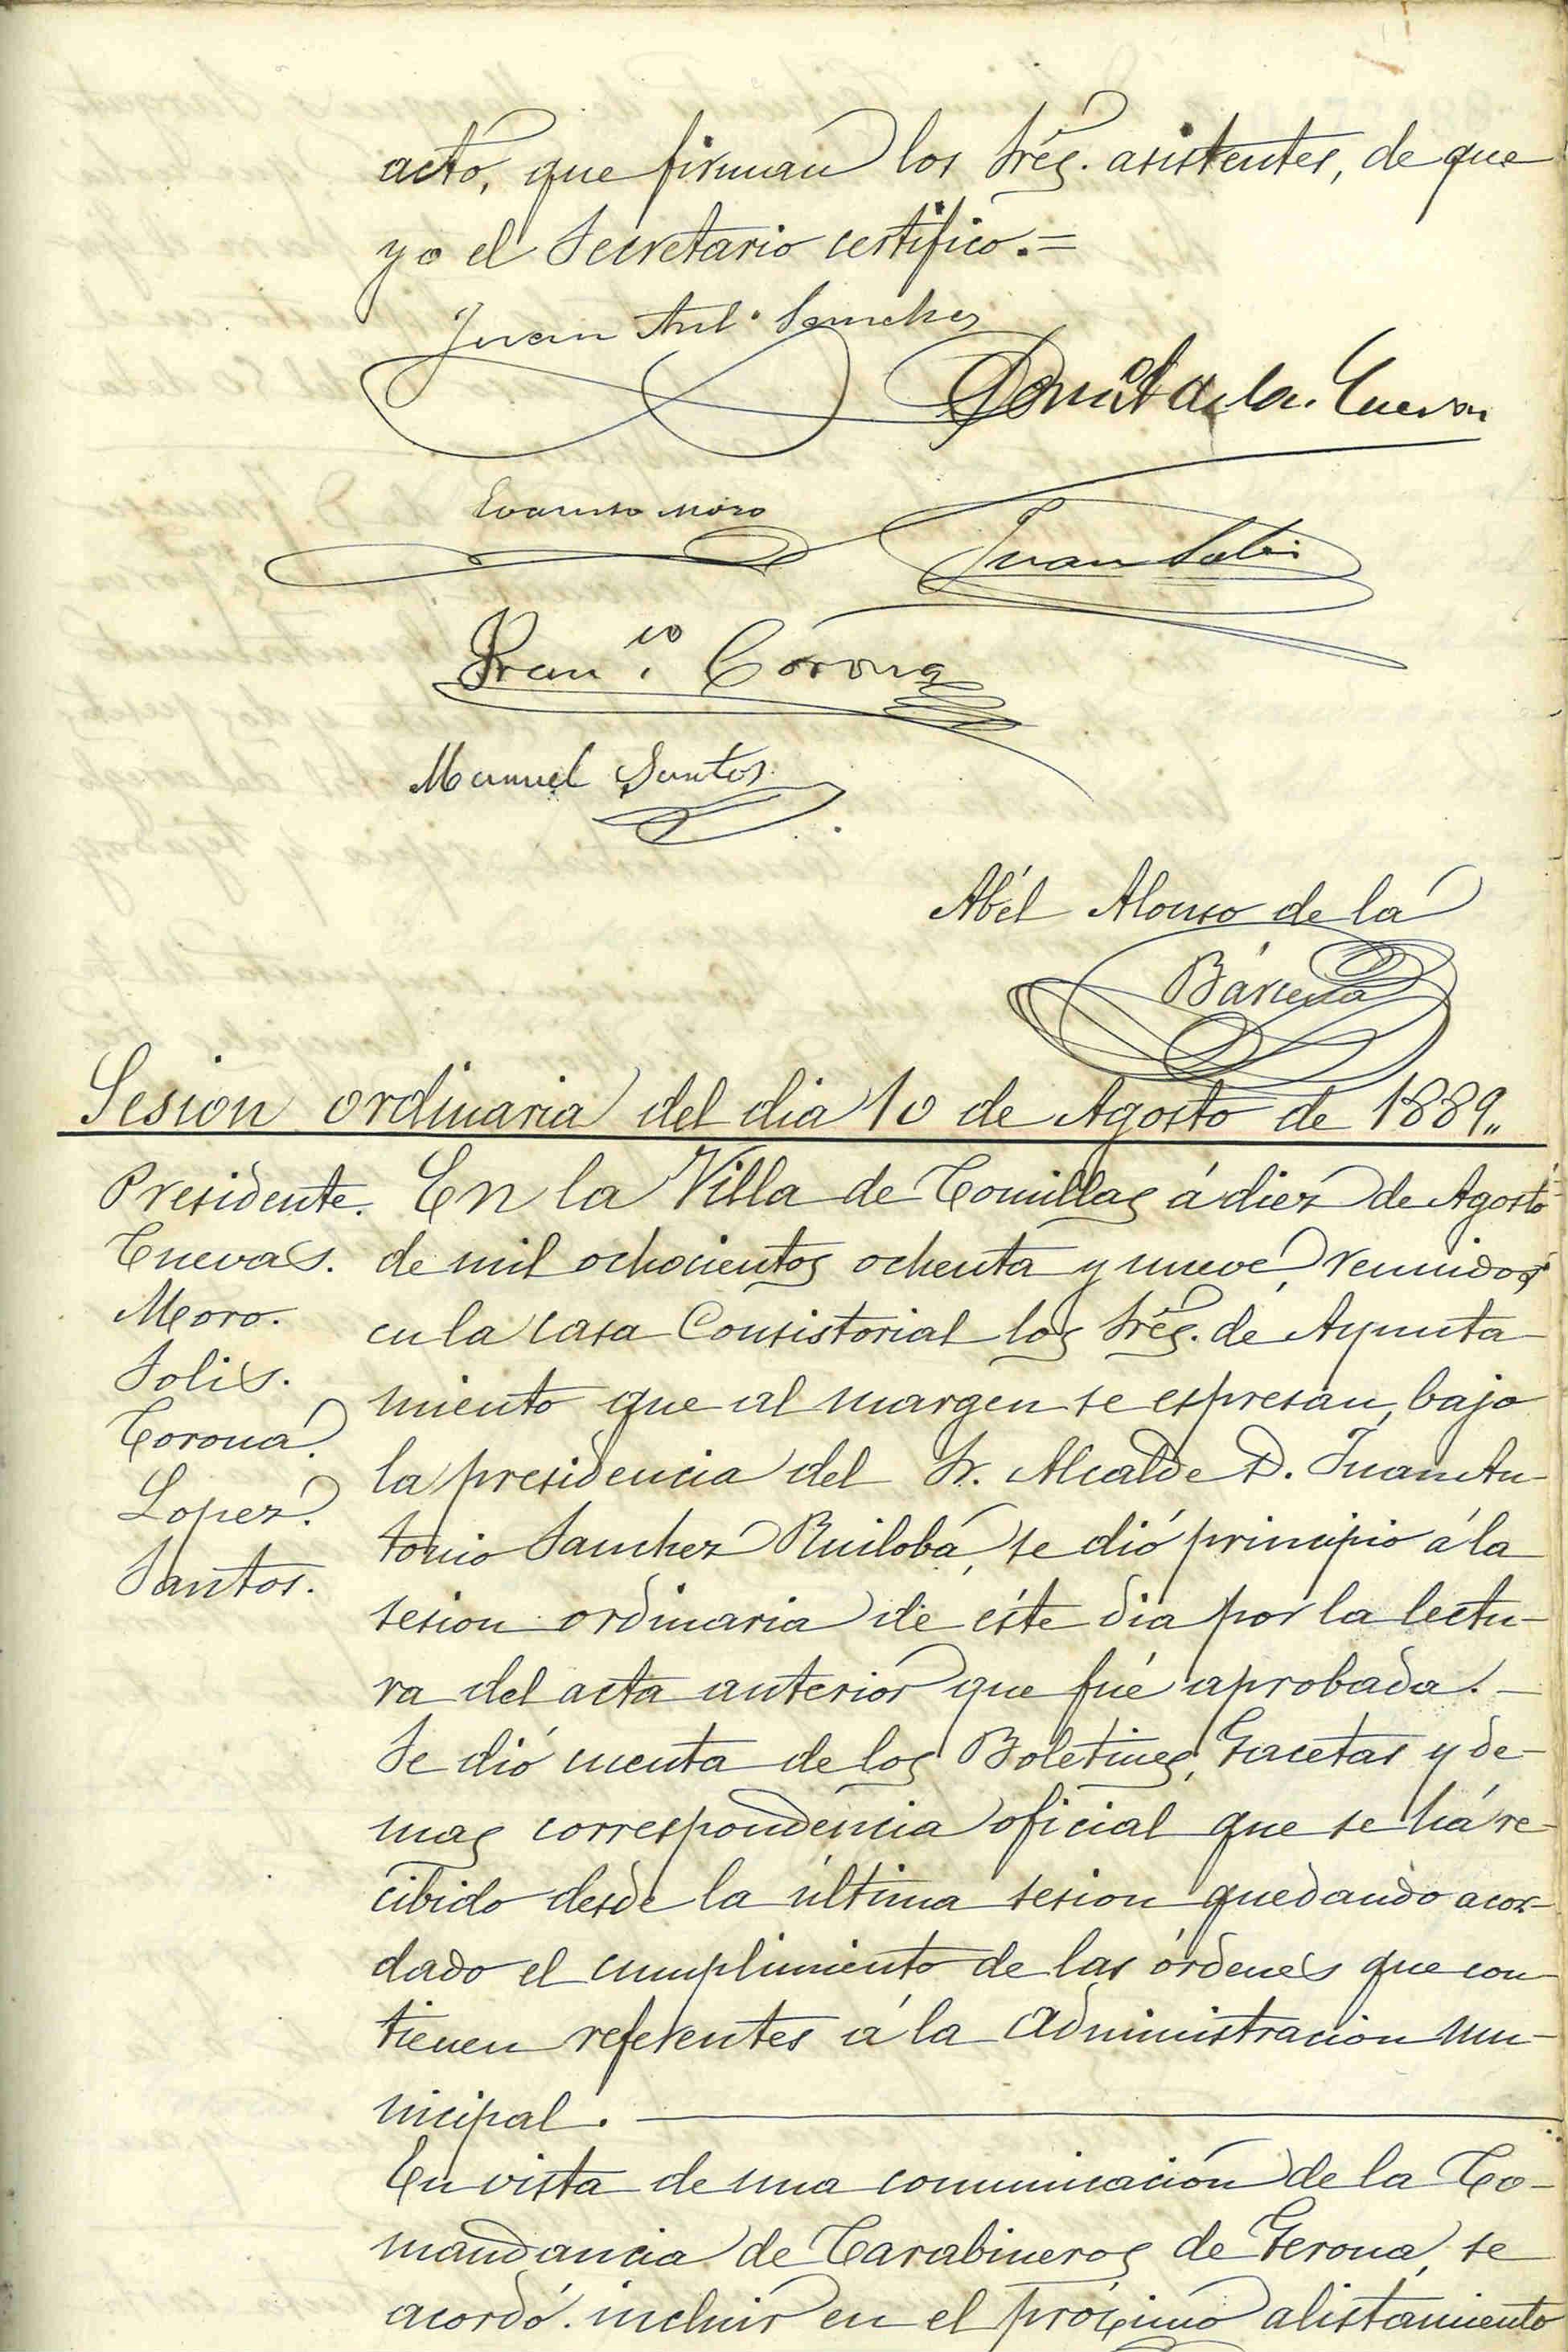 acto, que firman los Sres. asistentes, de que
yo el Secretario certifico.=
Juan Ant.º Sanchez
de la Cueva
Evaristo Moro
Juan Solis
Fran.co Corona
Manuel Santos
Abél Alonso de la
Bárcena
Sesion ordinaria del dia 10 de Agosto de 1889,,
Presidente.
Cuevas.
Moro.
Solis.
Corona.
Lopez.
Santos.
En la Villa de Comillas á diez de Agosto
de mil ochocientos ochenta y nueve, reunidos
en la casa Consistorial los Sres. de Ayunta-
miento que al margen se espresan, bajo
la presidencia del Sr. Alcalde D. Juan An-
tonio Sanchez Ruiloba, se dió principio á la
sesion ordinaria de éste dia por la lectu-
ra del acta anterior que fué aprobada.-
Se dió cuenta de los Boletines, Gacetas y de-
mas correspondencia oficial que se há re-
cibido desde la última sesion quedando acor-
dado el cumplimiento de las órdenes que con-
tienen referentes á la administracion mu-
nicipal.
En vista de una comunicacion de la Co-
mandancia de Carabineros de Gerona, se
acordó incluir en el próximo alistamiento